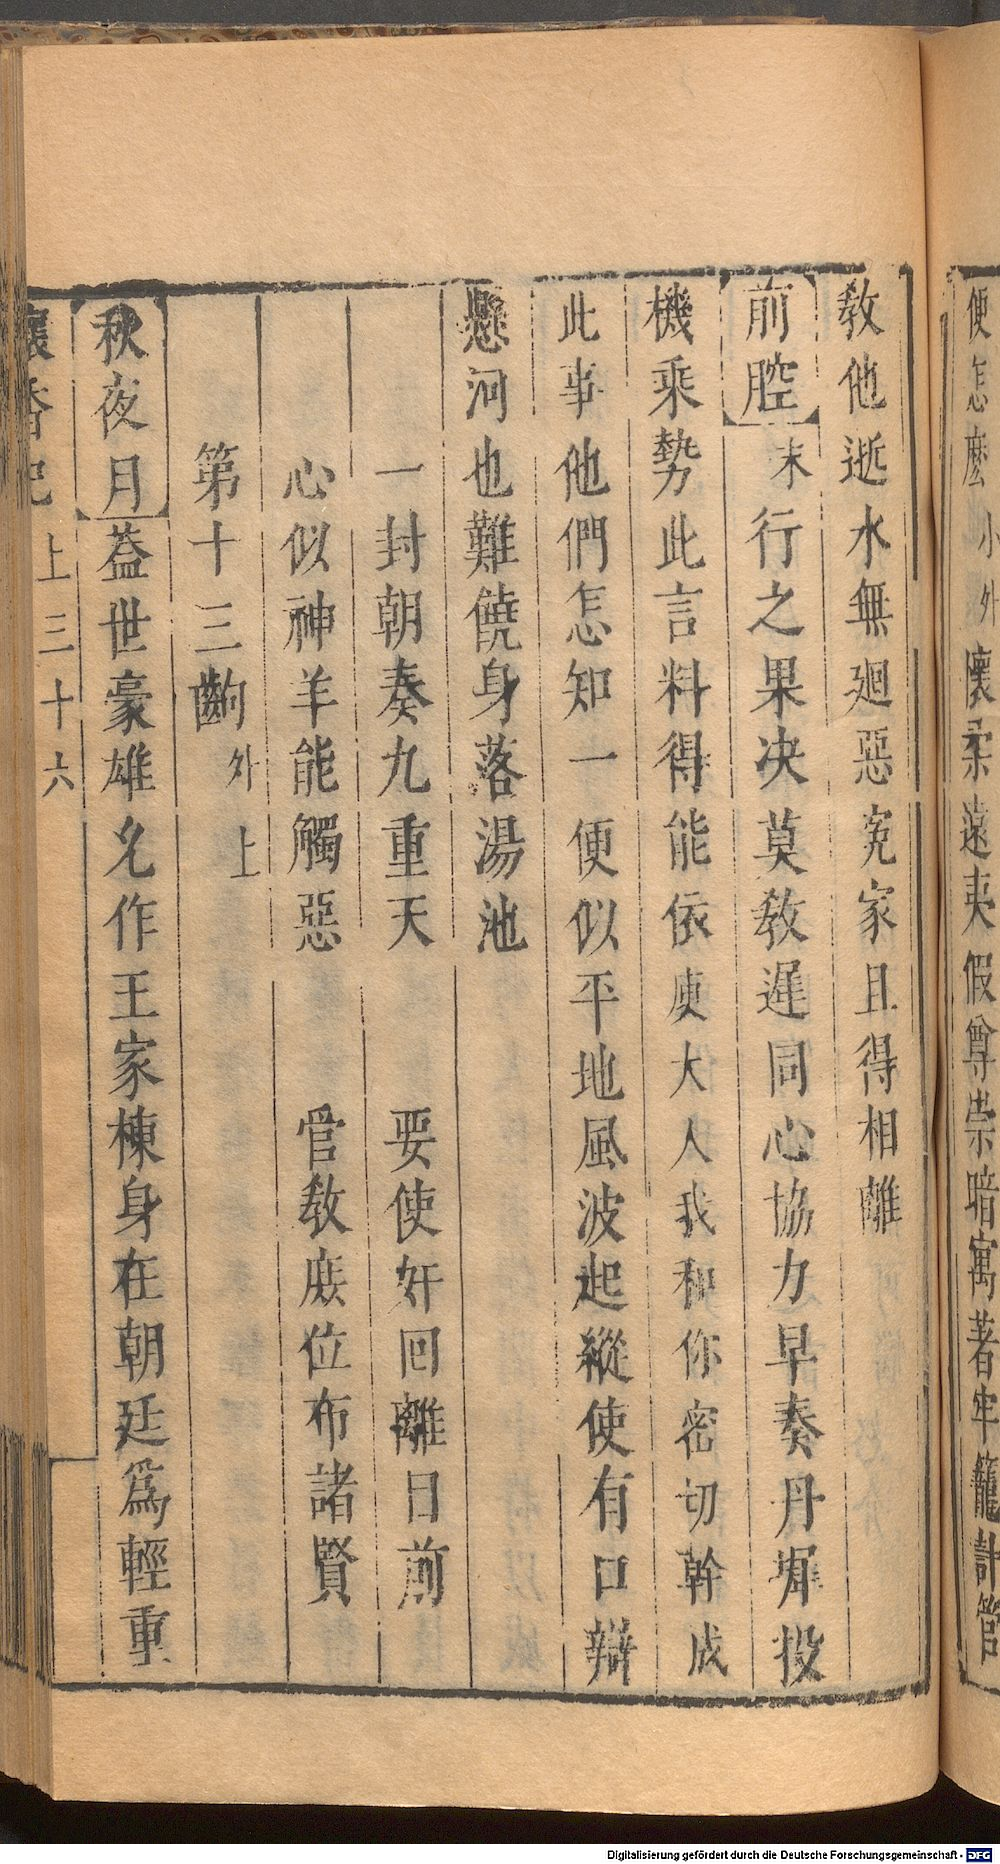 便怎麼小外懷柔遠夷假尊崇暗寓著牢籠計管
教他逝水無廻惡寃家且得相離
前腔末行之果决莫教遲同心協力早奏丹墀投
機乘勢此言料得能依庾大人我和你密切幹成
此事他們怎知一便似平地風波起縱使有口辯
懸河也難饒身落湯池
一封朝奏九重天　要使奸囘離日前
心似神羊能觸惡　管教庶位布諸賢
第十三齣外上
秋夜月葢世豪雄名作王家棟身在朝廷爲輕重
懷香記　上三十六
Digitalisierung gefördert durch die Deutsche Forschungsgemeinschaft - DFG